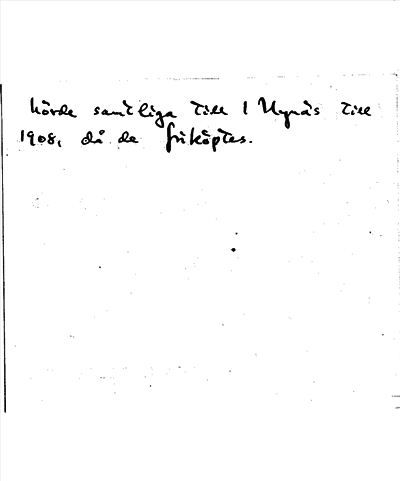 hörde samtliga till 1 Mynäs till
1908, då de friköptes.